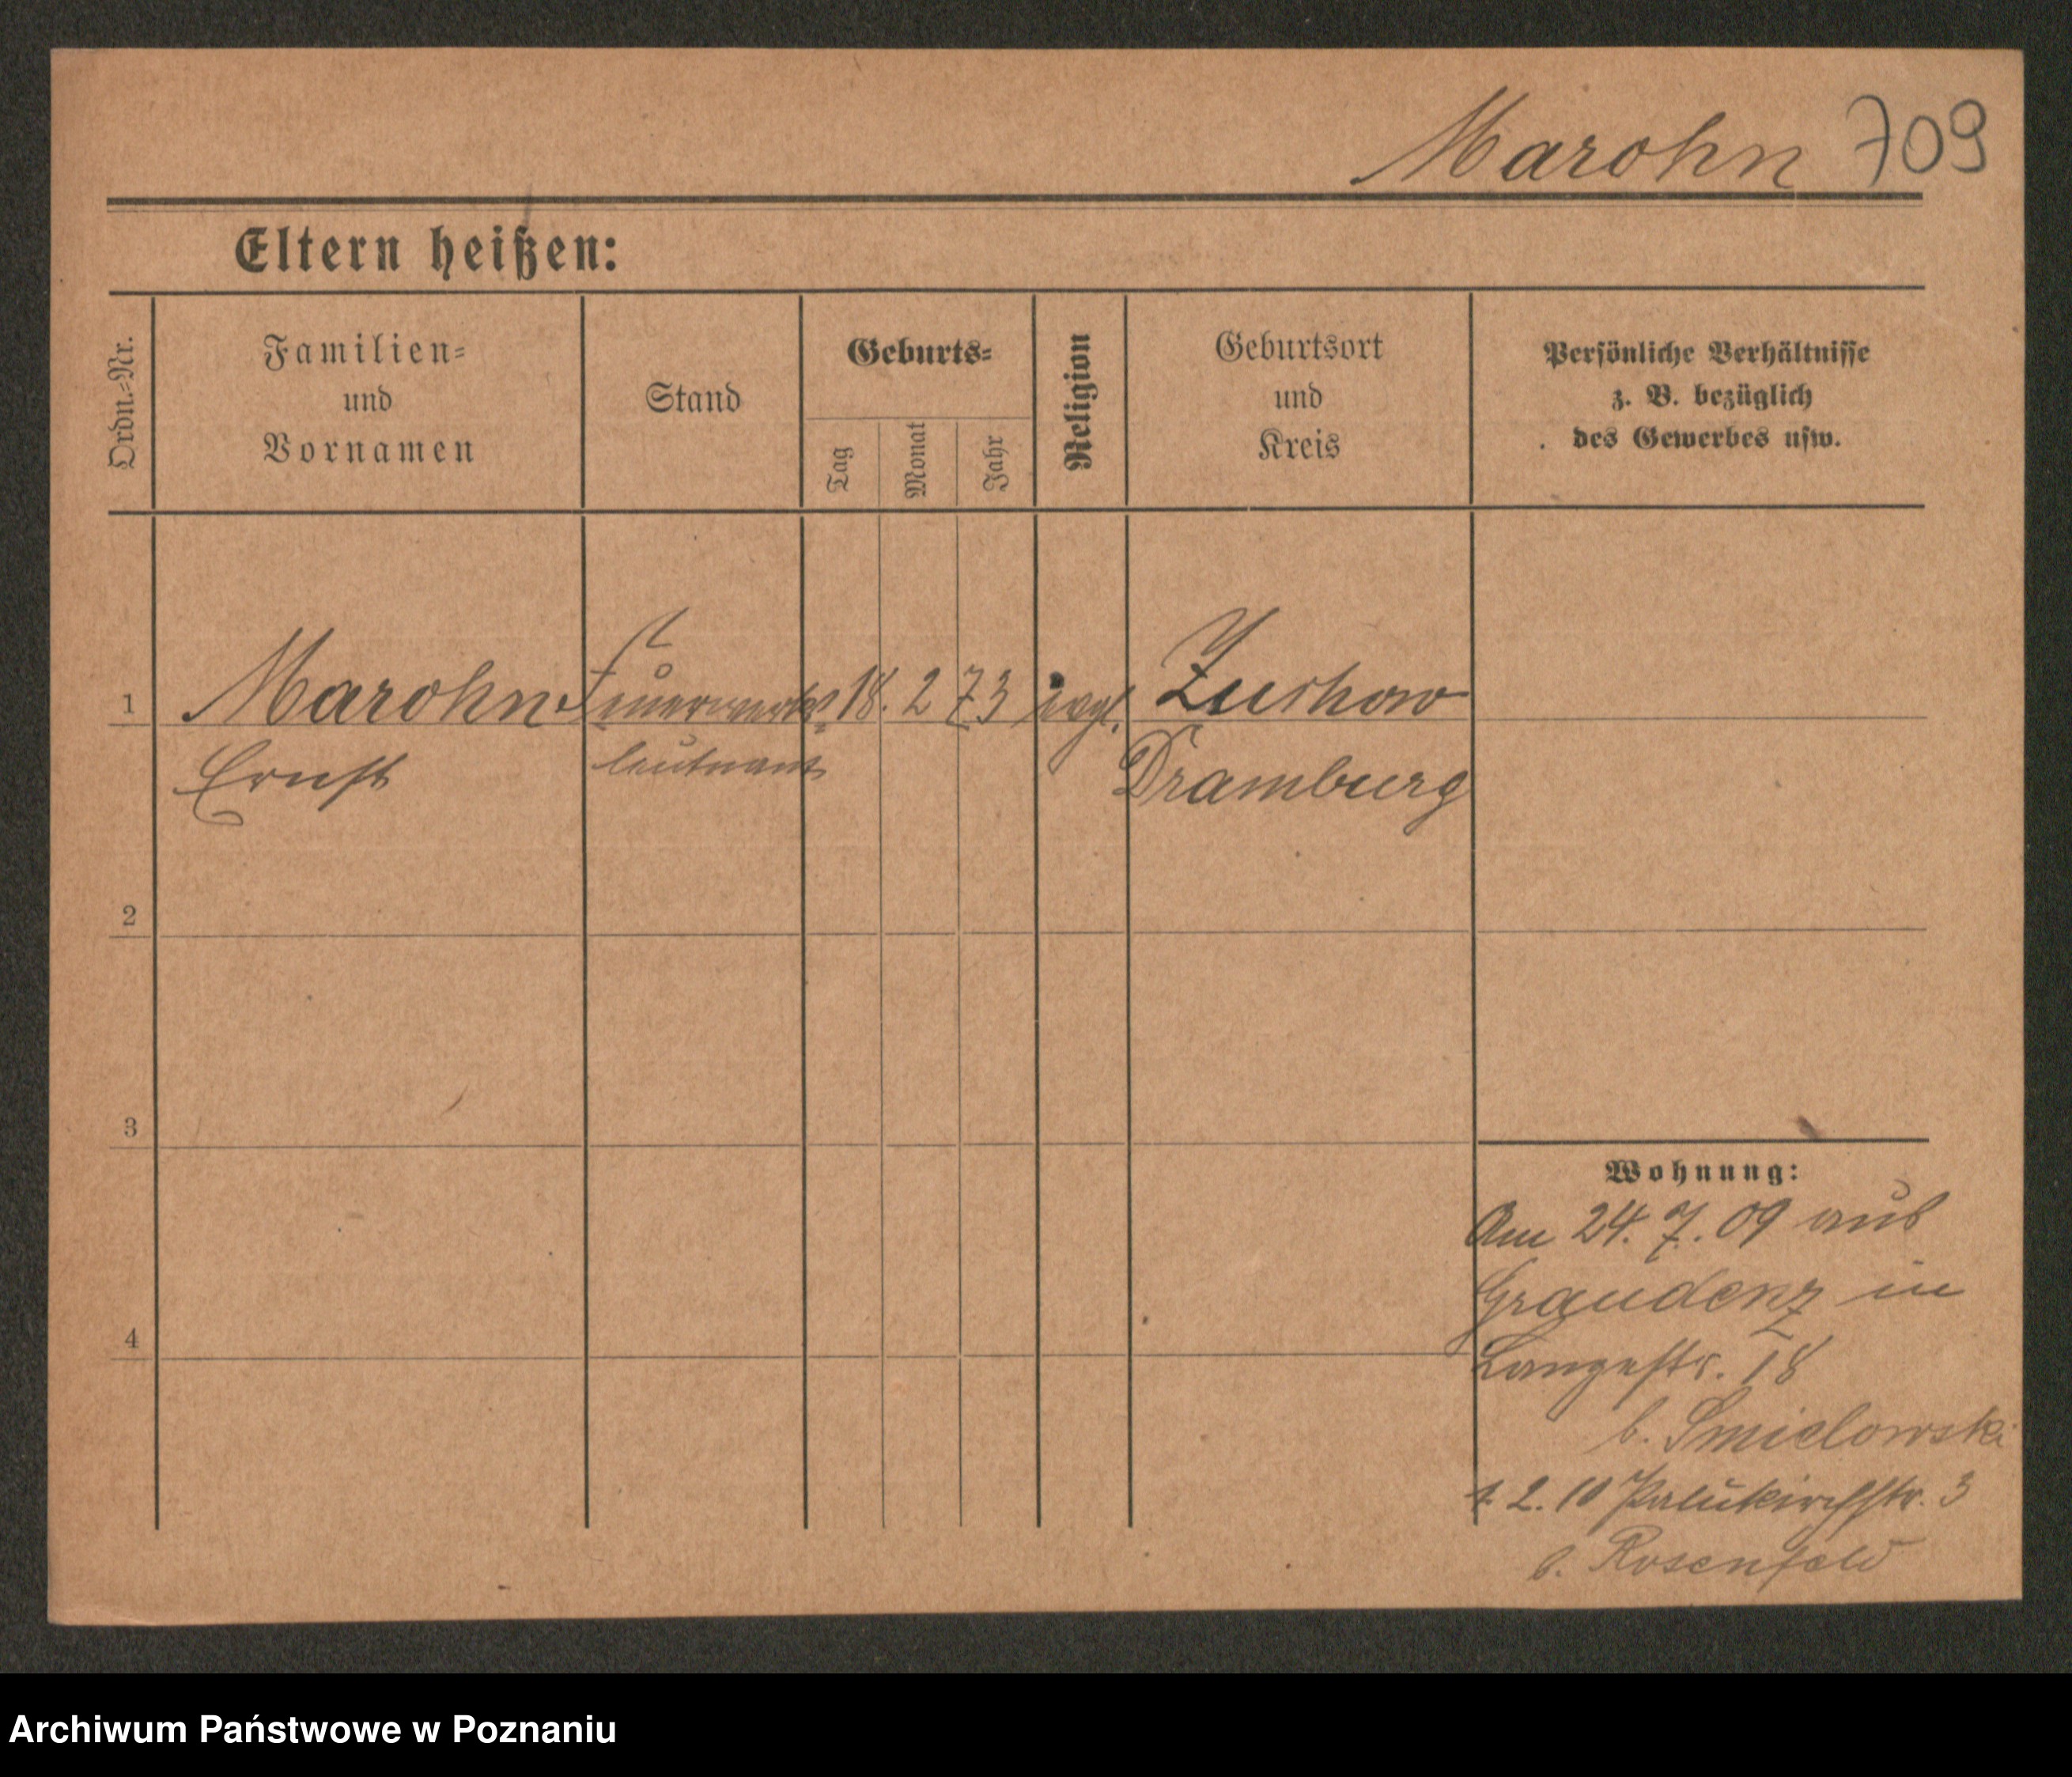 Marohn 709
Eltern heißen:
Ordn.-Nr.
Familien-
und
Vornamen
Stand
Geburts-
Tag
Monat
Jahr
Religion
Geburtsort
und
Kreis
Persönliche Verhältnisse
z. B. bezüglich
des Gewerbes usw.
1 Marohn Feuerwerks- 18. 2 73 Zuchow
Ernst leutnant Dramburg
2
3
4
Wohnung:
Am 24. 7. 09 aus
Graudenz in
Langestr. 18
b. Smielowski
1. 2. 10 Paulikirchstr. 3
b. Rosenfeld
Archiwum Państwowe w Poznaniu